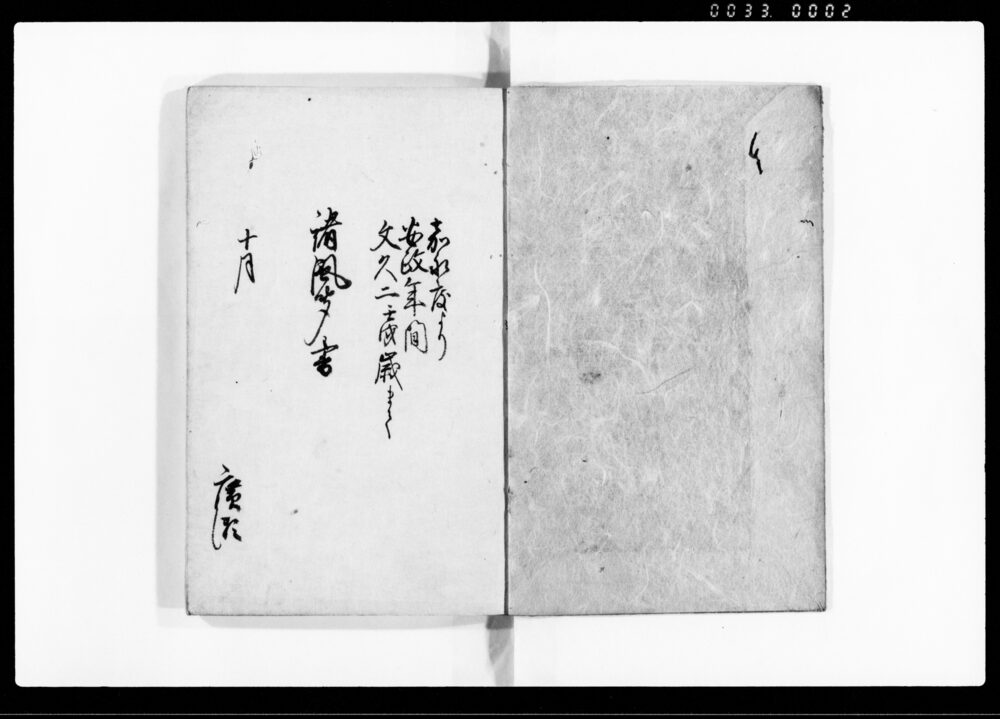 0033. 0002
嘉永度より
安政年間
文久二壬戌歳まて
諸風聞書
十月